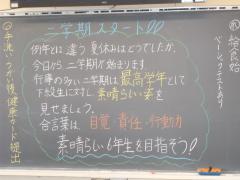 二学期スタート!!
例年とは違う夏休みはどうでしたか。
今日から二学期が始まります。
行事の多い二学期は最高学年として
下級生に対し、素晴らしい姿を
見せましょう。
合言葉は、自覚・責任・行動力
素晴らしい6年生を目指そう!!
給食始
手洗い、うがい後健康カード提出